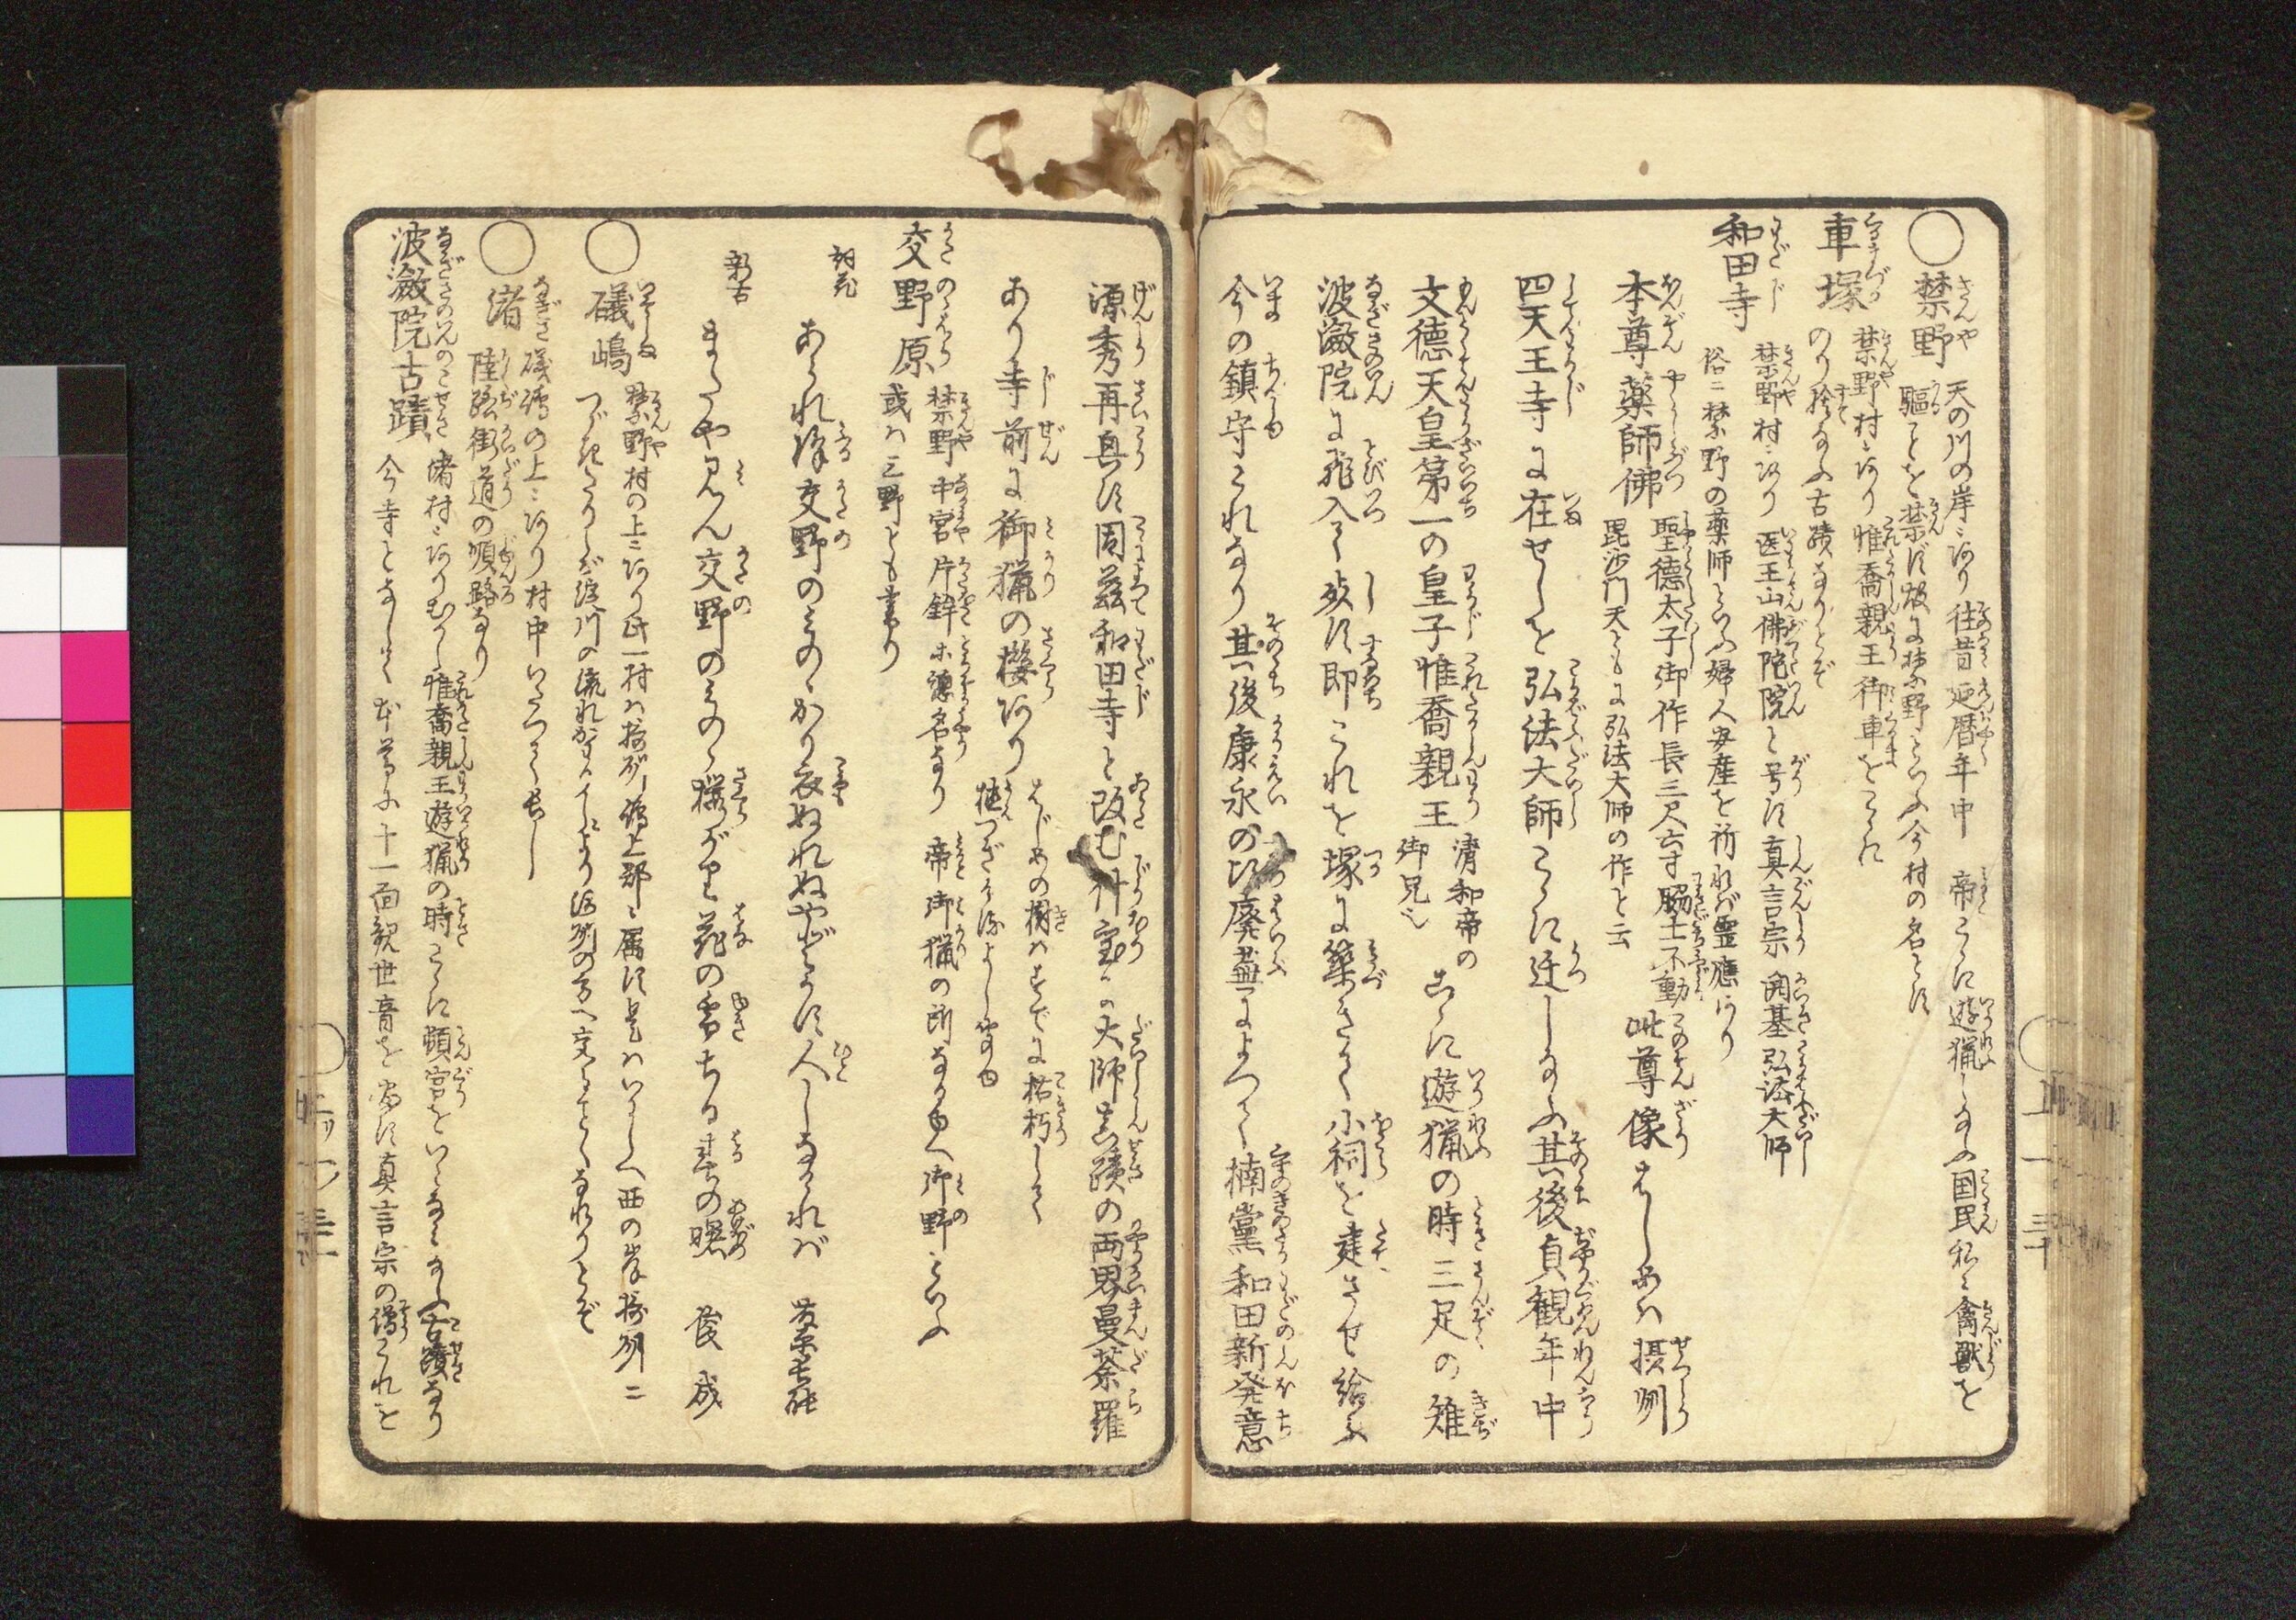 ○禁野 天の川の岸ニあり往昔延暦年中 帝こゝに遊猟し給ふ国民私ニ禽獣を
駆ことを禁ず故に禁野といふ今村の名とす
車塚 禁野村ニあり惟喬親王御車をこゝに
のり捨給ふ古蹟なりとぞ
和田寺 禁野村ニあり医王山佛陀院と号す真言宗開基弘法大師
俗ニ禁野の薬師といふ婦人安産を祈れバ霊應あり
本尊薬師佛 聖徳太子御作長三尺六寸脇士不動
毘沙門天ともに弘法大師の作と云
此尊像はじめハ摂州
四天王寺に在せしを弘法大師こゝに迁し給ふ其後貞観年中
文徳天皇第一の皇子惟喬親王 清和帝の
御兄也
こゝに遊猟の時三足の雉
波瀲院に飛入て死す即これを塚に築きて小祠を建させ給ふ
今の鎮守これなり其後康永の比廃盡によつて楠黨和田新発意
源秀再興す因茲和田寺と改む什宝に大師真蹟の両界曼荼羅
あり寺前に御猟の櫻あり はじめの樹ハすでに枯朽して
植つぎたるよし
交野原 禁野中宮片鉾ホ惣名なり 帝御猟の所なるゆへ御野といふ
或ハ三野とも書り
詞花 あられ降交野のみのゝかり衣ぬれぬやどかす人しなければ 藤原長能
新古 またや見ん交野のみのゝ櫻がり花の雪ちる春の曙 俊成
○礒嶋 禁野村の上ニあり此一村ハ摂州嶋上郡ニ属す是ハいにしへ西の岸摂州ニ
つゞきたりしが淀川の流れかはりしより河州の方へ交ることゝなれりとぞ
○渚 礒嶋の上ニあり村中いたつて長し
陸路街道の順路なり
波瀲院古蹟 渚村ニありむかし惟喬親王遊猟の時こゝに頓宮をいとなミ給ふ古蹟なり
今寺となりて本尊に十一面観世音を安ず真言宗の僧これを